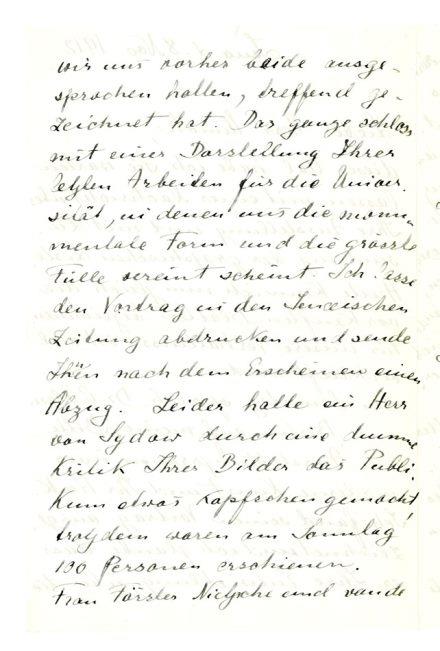 wir uns vorher beide ausge-
sprochen hatten, treffend ge-
zeichnet hat. Das ganze schloss
mit einer Darstellung Ihrer
letzten Arbeiten für die Univer-
sität, in denen uns die monu-
mentale Form und die grösste
Fülle vereint scheint. Ich lasse
den Vortrag in den Jenaischen
Zeitung abdrucken und sende
Ihnen nach dem Erscheinen einen
Abzug. Leider hatte ein Herr
von Sydow durch eine dumme
Kritik Ihrer Bilder das Publi-
kum etwas kopfscheu gemacht,
trotzdem waren am Sonntag
190 Personen erschienen.
Frau Förster Nietzsche und van de